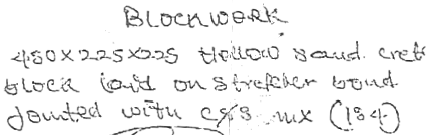 BLOCKWORK
450x225x225 Hollow sand crete
block laid on stretcher bond
Jointed with c&s mix (1:4)